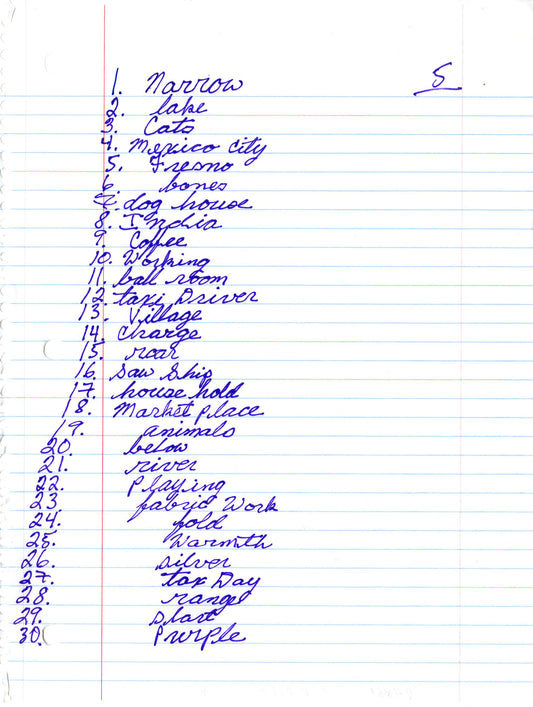 5
1. Narrow
2. lake
3. Cats
4. Mexico City
5. Fresno
6. bones
7. dog house
8. India
9. Coffee
10. Working
11. ball room
12. taxi Driver
13. Village
14. Charge
15. roar
16. Saw Ship
17. house hold
18. Market place
19. animals
20. below
21. river
22. Playing
23 fabric Work
24. fold
25. Warmth
26. silver
27. tax Day
28. range
29. slant
30. Purple